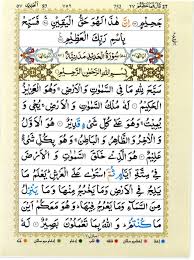 جَحِيْمٍ ۝ اِنَّ هٰذَا لَهُوَ حَقُّ الْيَقِيْنِ ۝ فَسَبِّحْ
بِاسْمِ رَبِّكَ الْعَظِيْمِ ۝
سُوْرَةُ الْحَدِيْدِ مَدَنِيَّةٌ
بِسْمِ اللّٰهِ الرَّحْمٰنِ الرَّحِيْمِ
سَبَّحَ لِلّٰهِ مَا فِى السَّمٰوٰتِ وَالْاَرْضِ ۚ وَهُوَ الْعَزِيْزُ
الْحَكِيْمُ ۝ لَهٗ مُلْكُ السَّمٰوٰتِ وَالْاَرْضِ ۚ يُحْيٖ وَ
يُمِيْتُ ۚ وَهُوَ عَلٰى كُلِّ شَىْءٍ قَدِيْرٌ ۝ هُوَ الْاَوَّلُ
وَالْاٰخِرُ وَالظَّاهِرُ وَالْبَاطِنُ ۚ وَهُوَ بِكُلِّ شَىْءٍ
عَلِيْمٌ ۝ هُوَ الَّذِىْ خَلَقَ السَّمٰوٰتِ وَالْاَرْضَ
فِىْ سِتَّةِ اَيَّامٍ ثُمَّ اسْتَوٰى عَلَى الْعَرْشِ ۚ يَعْلَمُ
مَا يَلِجُ فِى الْاَرْضِ وَمَا يَخْرُجُ مِنْهَا وَمَا يَنْزِلُ
مِنَ السَّمَآءِ وَمَا يَعْرُجُ فِيْهَا ۚ وَهُوَ مَعَكُمْ اَيْنَ
مَا كُنْتُمْ ۚ وَاللّٰهُ بِمَا تَعْمَلُوْنَ بَصِيْرٌ ۝ لَهٗ